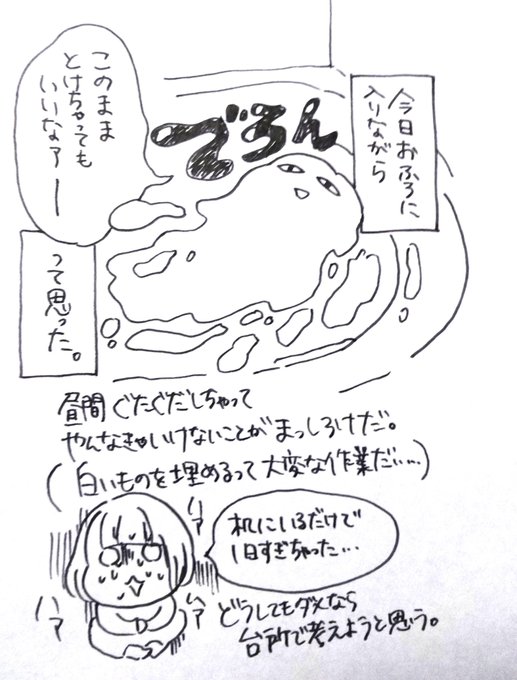 今日おふろに
入りながら
でろん
このまま
とけちゃっても
いいなァー
って思った。
昼間ぐだぐだしちゃって
やんなきゃいけないことがまっしろけだ。
(白いものを埋めるって大変な作業だ……)
机にいるだけで
1日すぎちゃった…
ハァ
ハァ
ハァ
どうしてもダメなら
台所で考えようと思う。